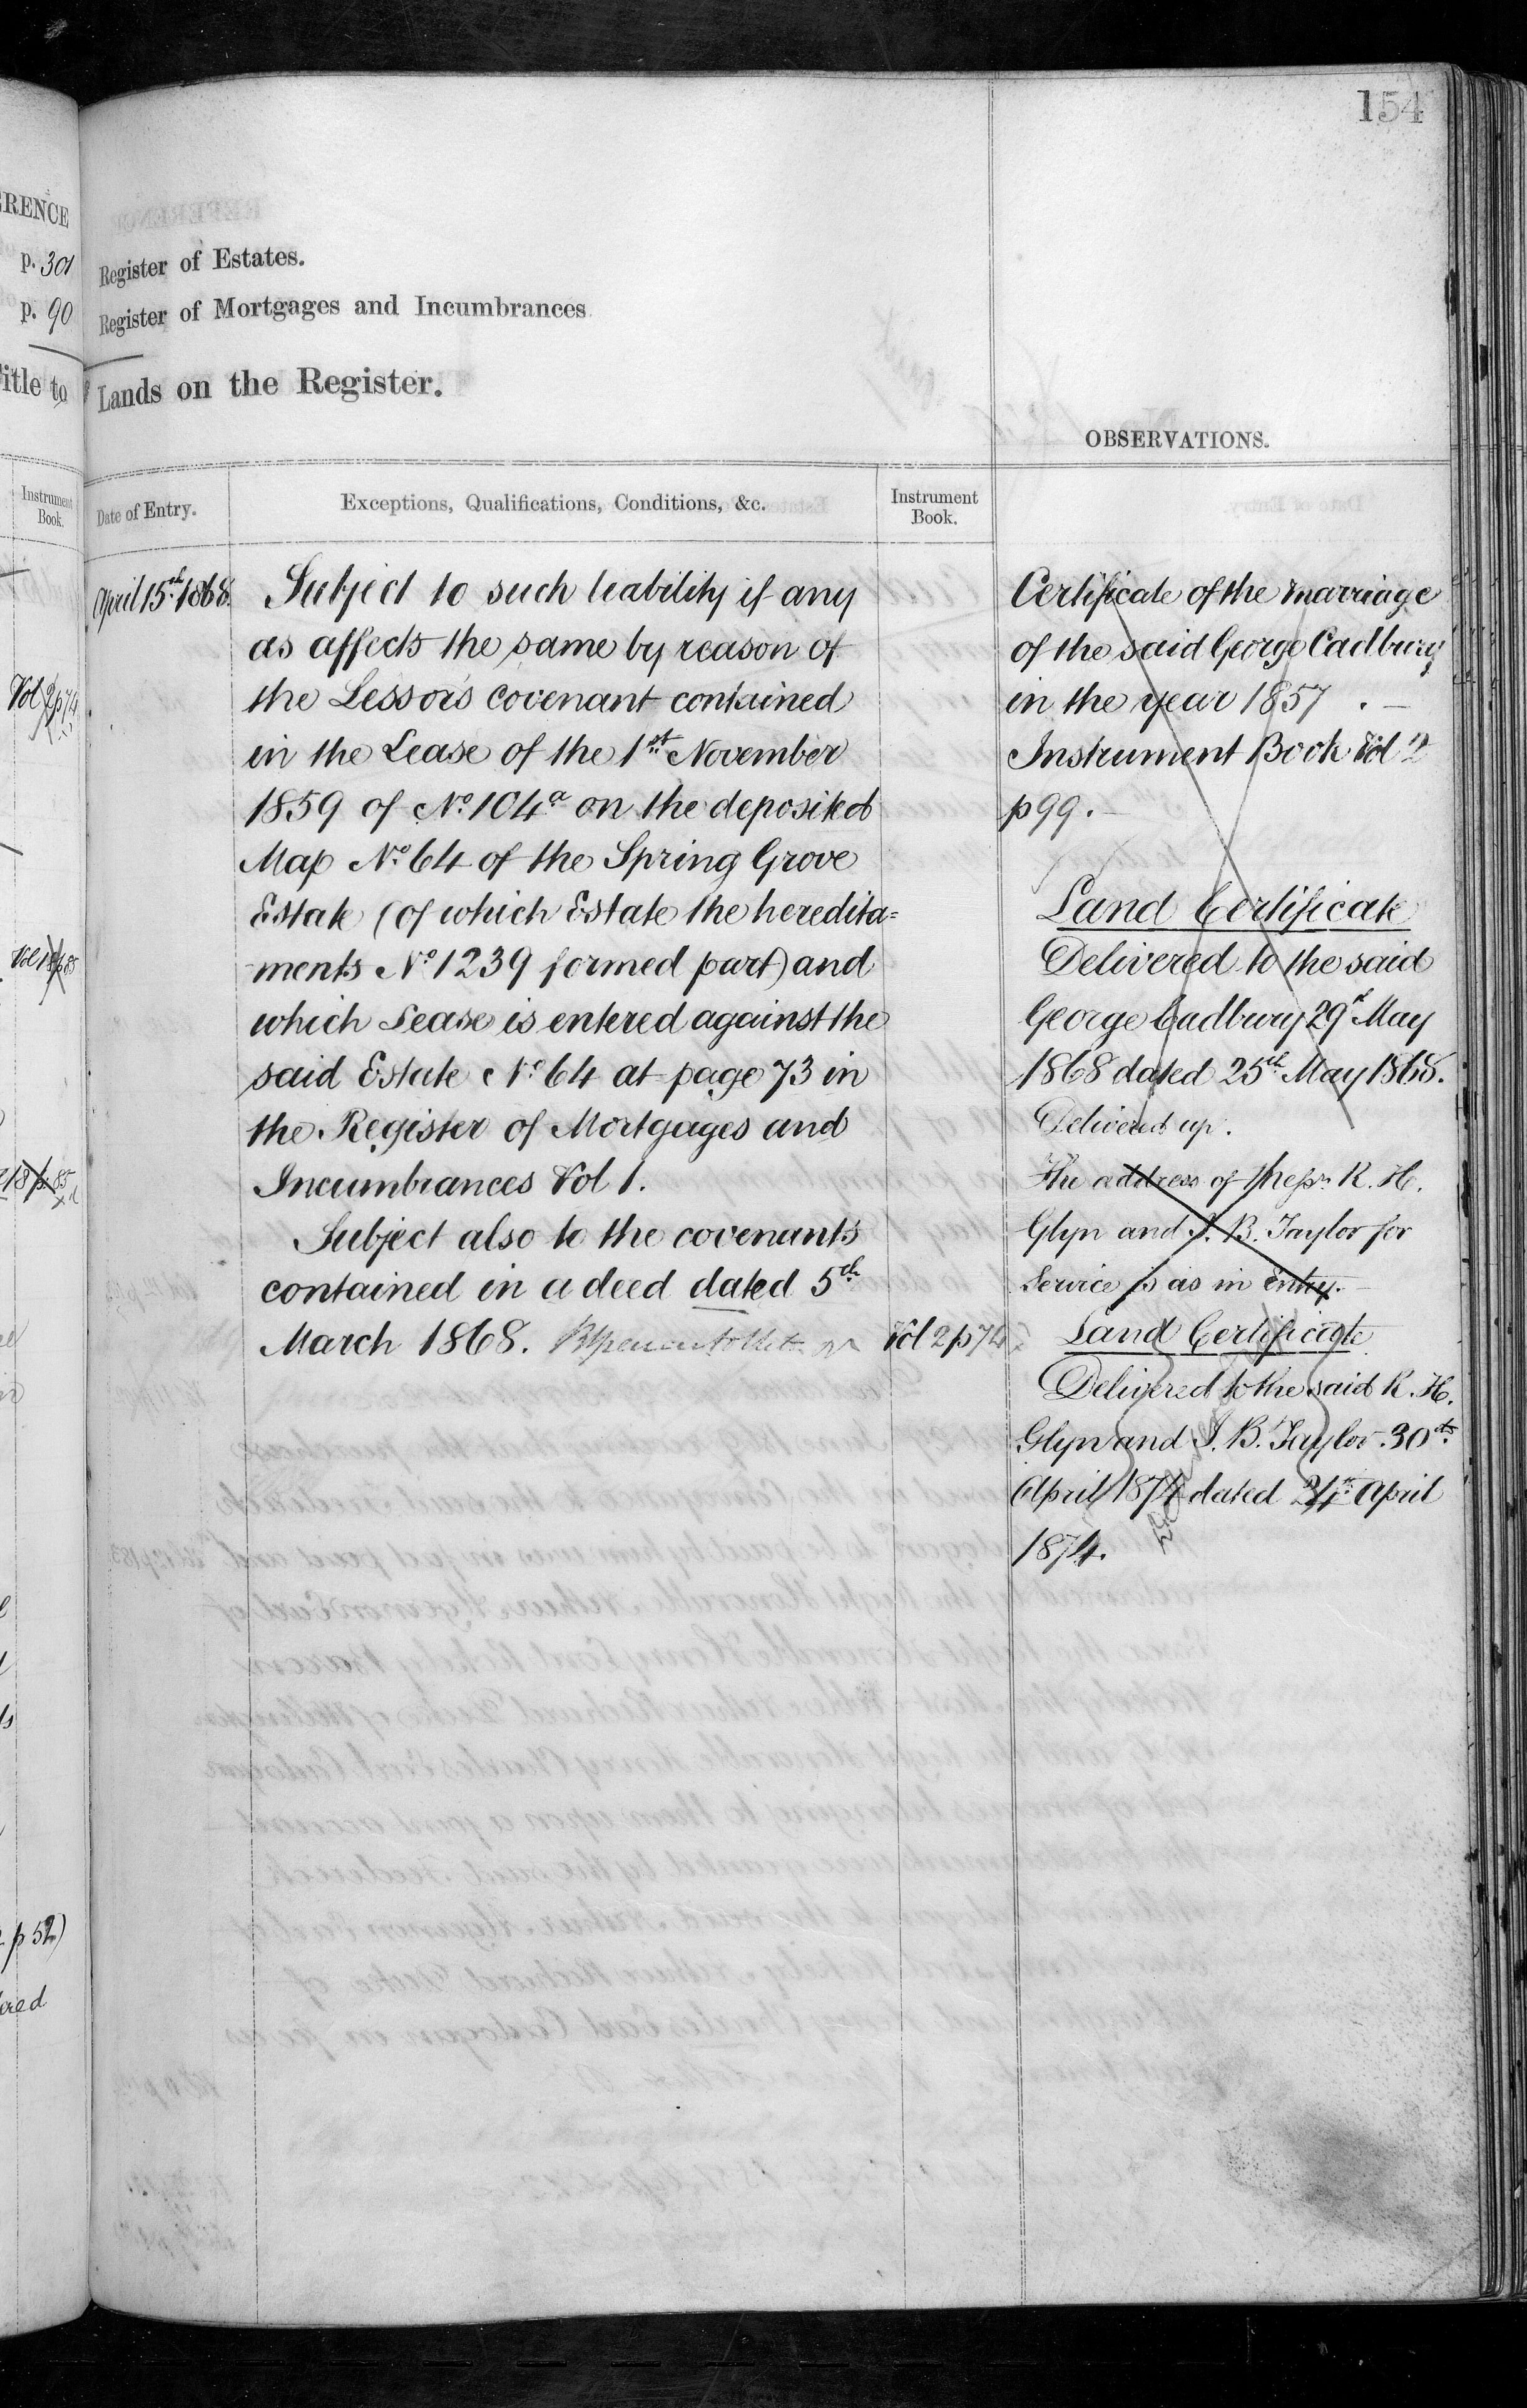 154
ERENCE
p. 301
p. 90
Title to
Instrument
Book.
Vol 2 p 74
Vol 18 p 85
18 p. 85
p 52)
ered
Register of Estates.
Register of Mortgages and Incumbrances
Lands on the Register.
OBSERVATIONS.
Date of Entry.
Exceptions, Qualifications, Conditions, &c.
Instrument
Book.
April 15th 1868.
Subject to such liability if any
as affects the same by reason of
the Lessors covenant contained
in the Lease of the 1st November
1859 of No. 104a on the deposited
Map No. 64 of the Spring Grove
Estate (of which Estate the heredita=
ments No. 1239 formed part) and
which Lease is entered against the
said Estate No. 64 at page 73 in
the Register of Mortgages and
Incumbrances Vol 1.
Subject also to the covenants
contained in a deed dated 5th
March 1868.
Vol 2 p 74
Certificate of the marriage
of the said George Cadbury
in the year 1857 . –
Instrument Book Vol 2
p 99. –
Land Certificate
Delivered to the said
George Cadbury 29th May
1868 dated 25th May 1868.
Delivered up.
The address of Messrs. R. H.
Glyn and J. B. Taylor for
Service is as in entry. –
Land Certificate
Delivered to the said R. H.
Glyn and J. B. Taylor. 30th
April 1874 dated 24th April
1874.